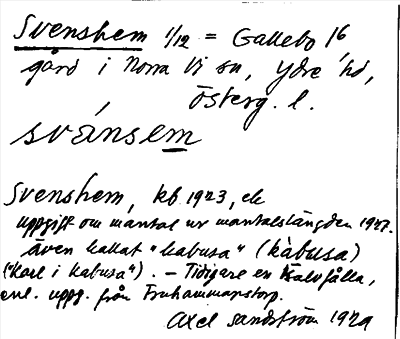 Svenshem 1/12 = Gallebo 16
gård i Norra Vi sn, Ydre hd,
Österg. l.
svánsem
Svenshem, kb 1923, ek
uppgift om mantal ur mantalslängden 1927.
även kallat "kabusa" (kàbusa)
("Karl i kabusa"). – Tidigare en kalvfålla,
enl. uppg. från Fruhammarstorp.
Axel Sandström 1929